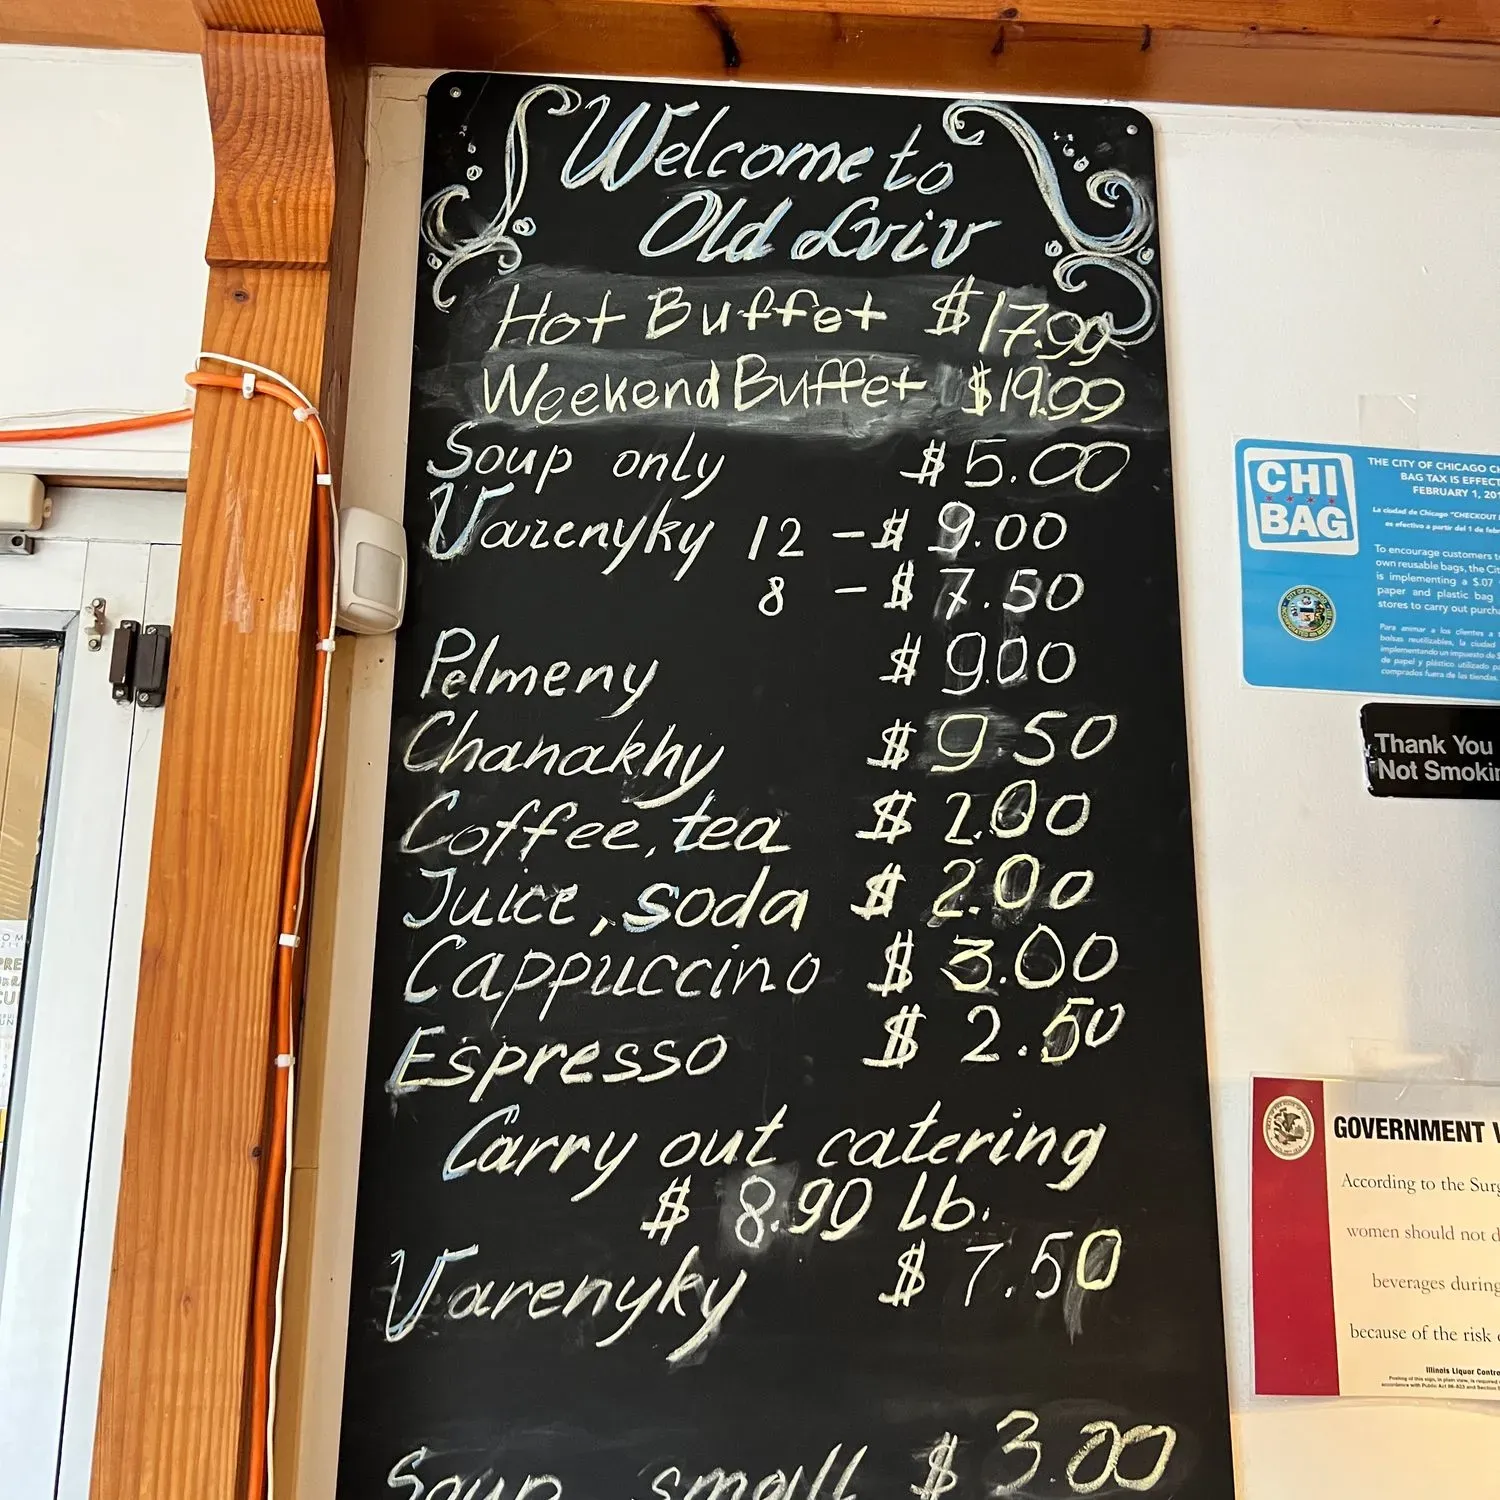 Welcome to
Old Lviv
Hot Buffet $17.99
Weekend Buffet $19.99
Soup only $5.00
Varenyky 12 - $ 9.00
8 - $ 7.50
Pelmeny $ 9.00
Chanakhy $ 9.50
Coffee, tea $ 2.00
Juice, soda $ 2.00
Cappuccino $ 3.00
Espresso $ 2.50
Carry out catering
$ 8.99 lb.
Varenyky $ 7.50
Soup small $ 3.00
CHI
BAG
THE CITY OF CHICAGO
BAG TAX IS EFFECT
FEBRUARY 1, 201
La ciudad de Chicago "CHECKOUT
es efectivo a partir del 1 de
To encourage customers
own reusable bags, the
is implementing a $.07
paper and plastic bag
stores to carry out
Para animar a los clientes a
bolsas reutilizables, la ciudad
implementando un impuesto de
de papel y plástico utilizado
comprados fuera de las tiendas.
Thank You
Not Smokin
GOVERNMENT
According to the Surg
women should not d
beverages during
because of the risk
Illinois Liquor Contro